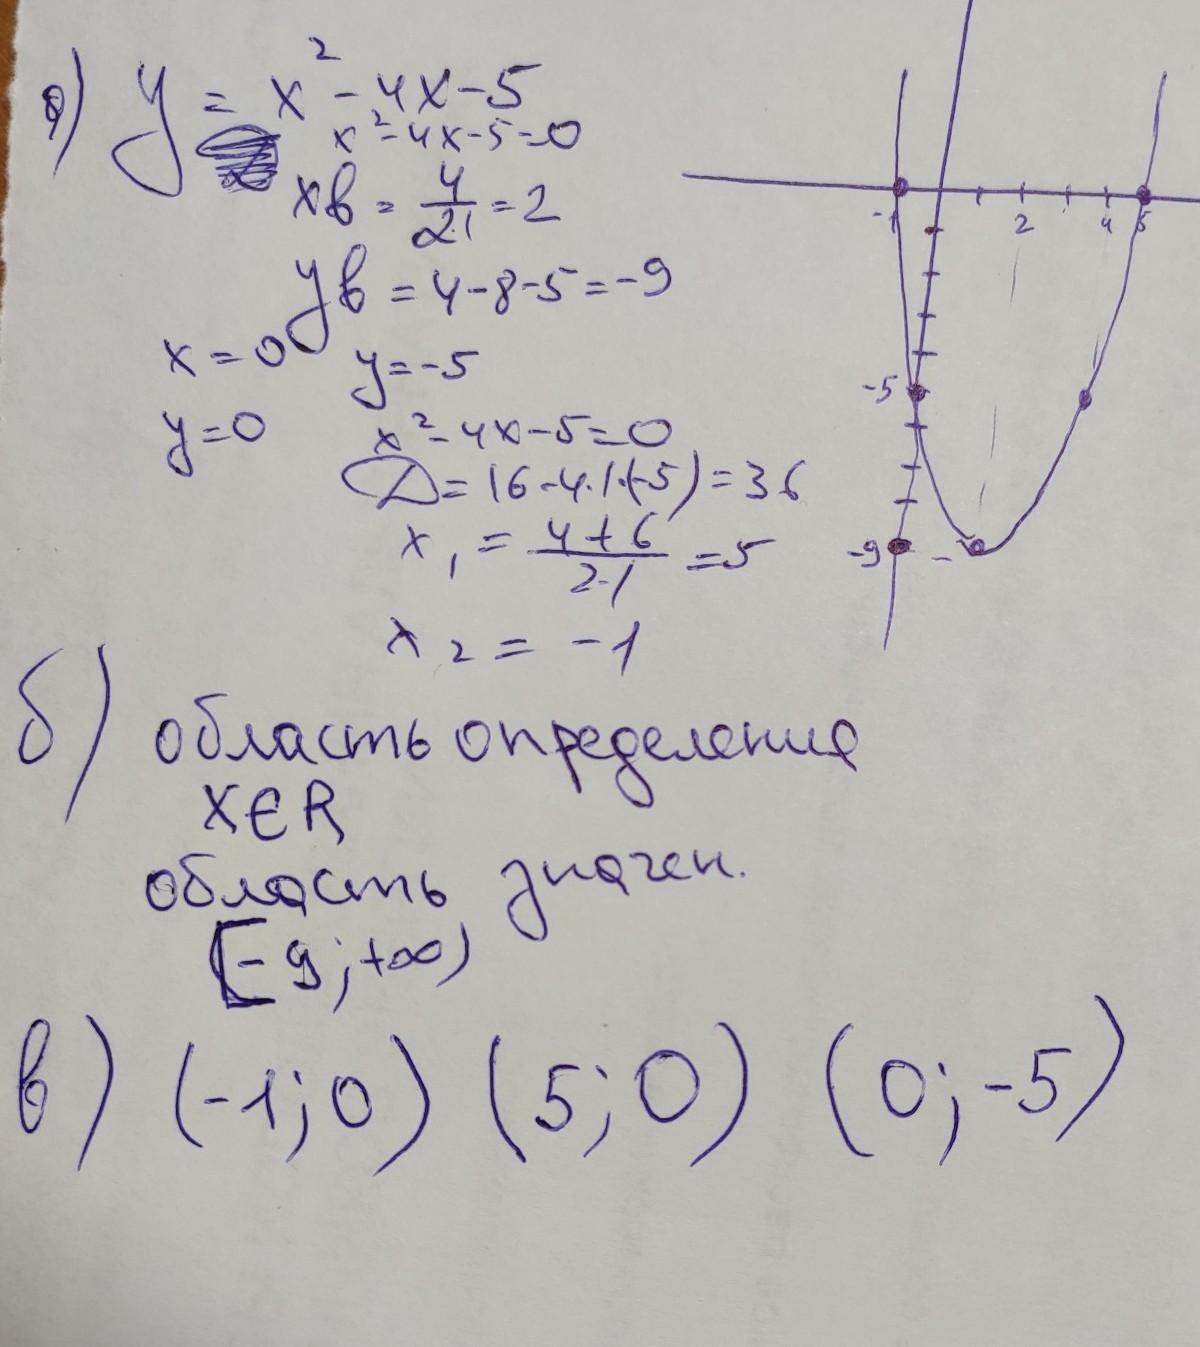 а) y = x² - 4x - 5
x² - 4x - 5 = 0
xв = 4/2·1 = 2
yв = 4 - 8 - 5 = -9
x = 0 y = -5
y = 0 x² - 4x - 5 = 0
D = 16 - 4·1·(-5) = 36
x₁ = 4 + 6/2·1 = 5
x₂ = -1
-1 2 4 5
-5
-9
б) область определения
x∈R
область значен.
[-9; +∞)
в) (-1; 0) (5; 0) (0; -5)